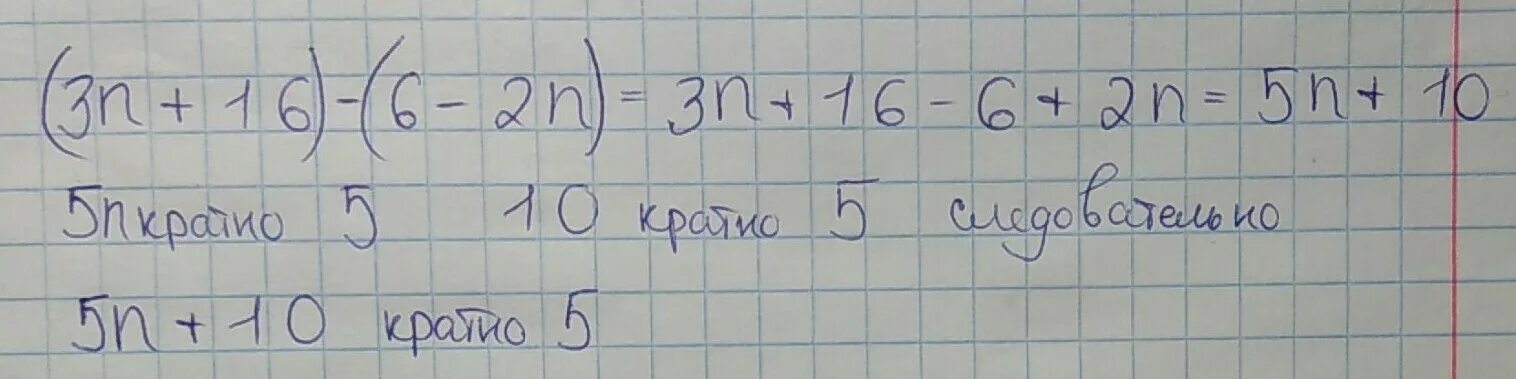 (3n + 16) - (6 - 2n) = 3n + 16 - 6 + 2n = 5n + 10
5n кратно 5 10 кратно 5 следовательно
5n + 10 кратно 5